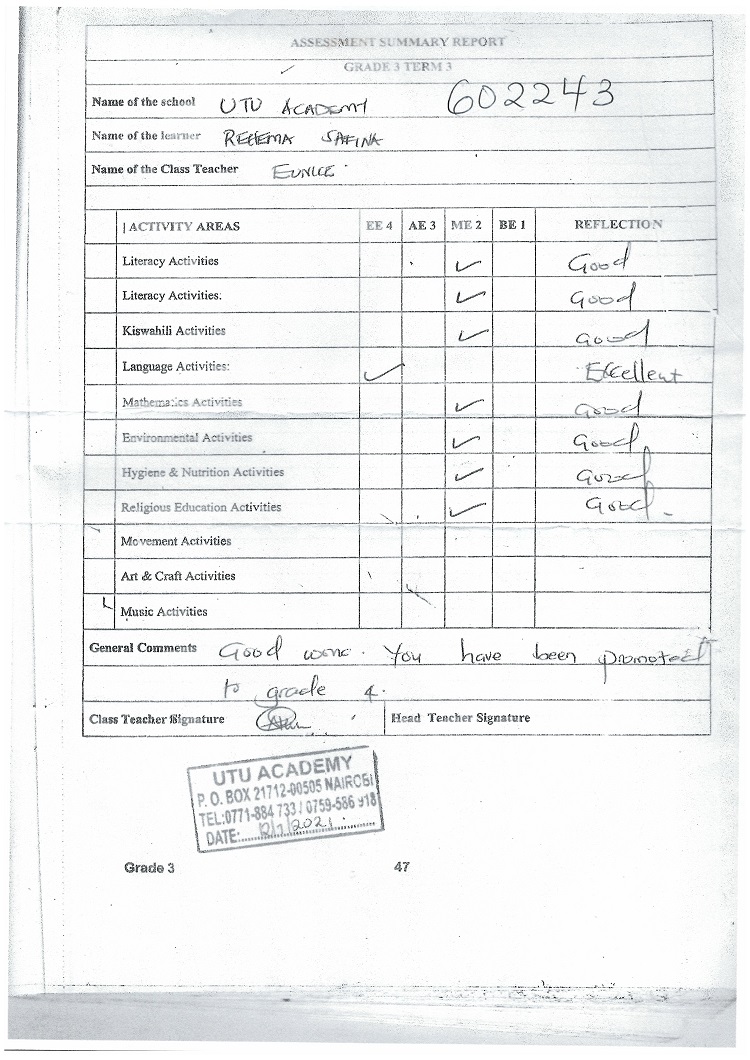 ASSESSMENT SUMMARY REPORT
GRADE 3 TERM 3
Name of the school UTU ACADEMY 602243
Name of the learner REHEMA SAFINA
Name of the Class Teacher EUNICE
ACTIVITY AREAS EE 4 AE 3 ME 2 BE 1 REFLECTION
Literacy Activities ✓ Good
Literacy Activities: ✓ Good
Kiswahili Activities ✓ Good
Language Activities: ✓ Excellent
Mathematics Activities ✓ Good
Environmental Activities ✓ Good
Hygiene & Nutrition Activities ✓ Good
Religious Education Activities ✓ Good
Movement Activities
Art & Craft Activities
Music Activities
General Comments Good work. You have been promoted
to grade 4.
Class Teacher Signature Head Teacher Signature
UTU ACADEMY
P. O. BOX 21712-00505 NAIROBI
TEL:0771-884 733 / 0759-586 918
DATE: 2021
Grade 3 47